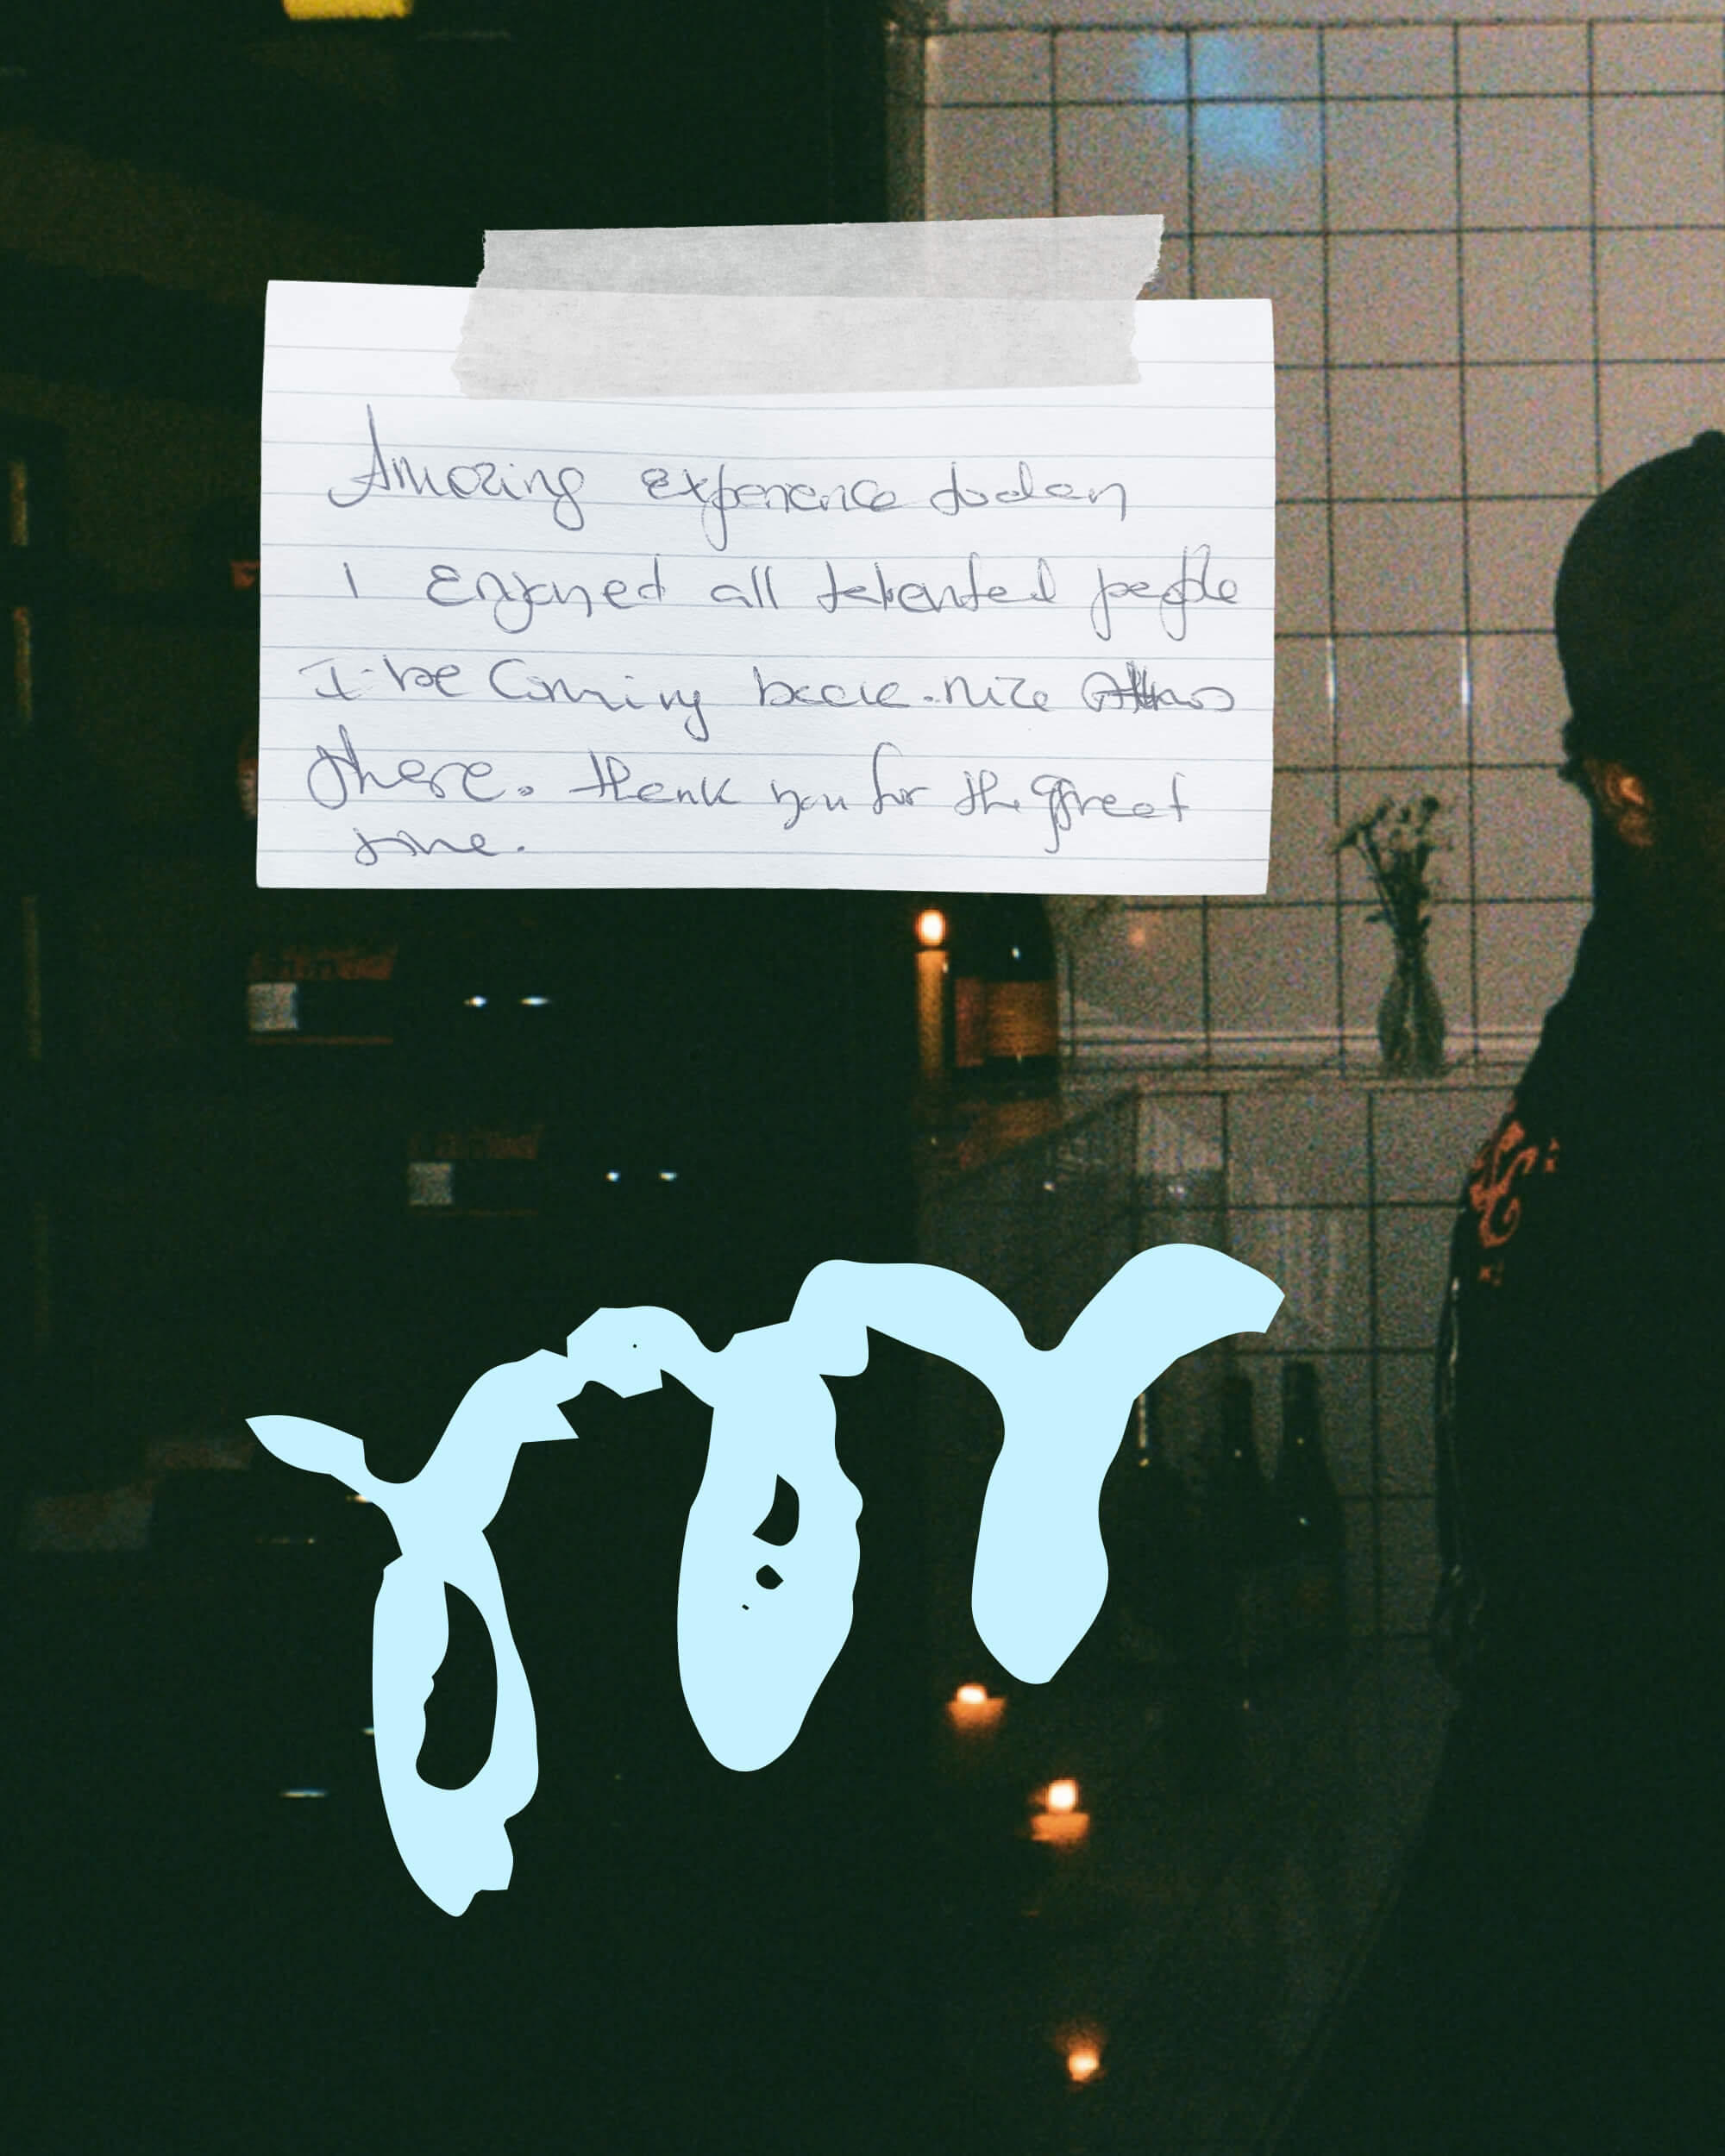 Amazing experience today
I Enjoyed all talented people
I be Coming back. nice
there. thank you for the great
time.